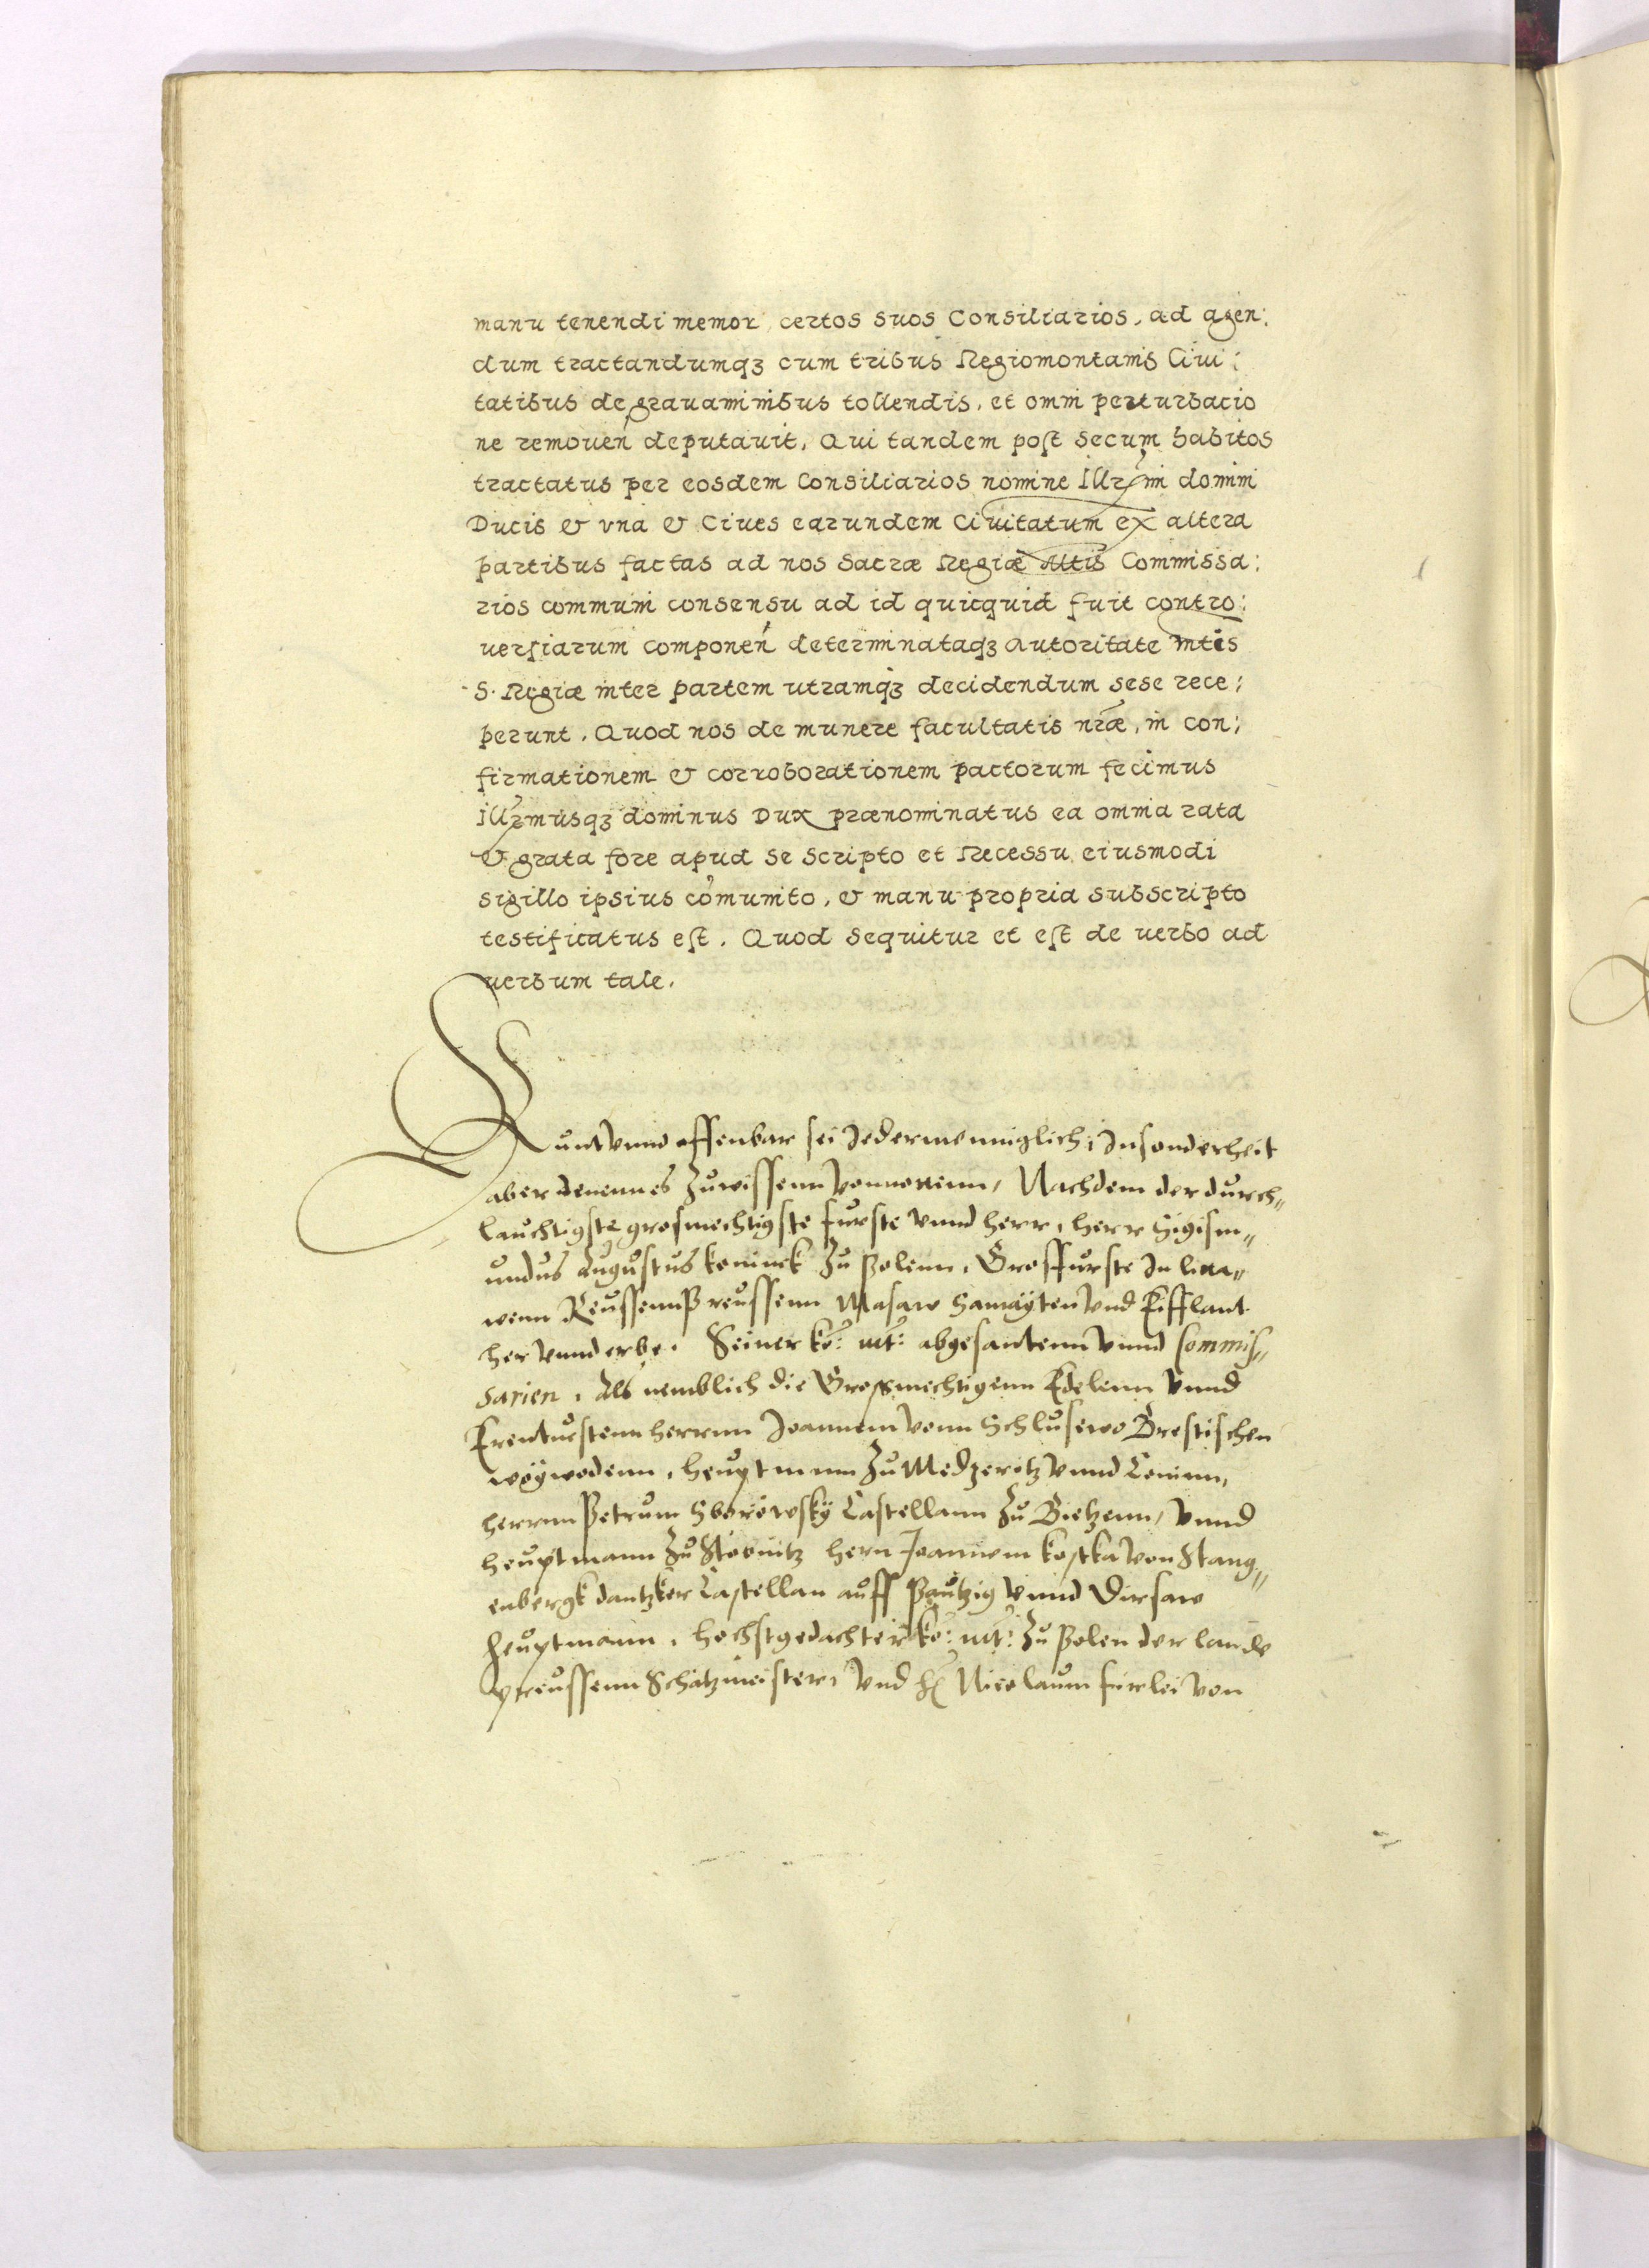 manu tenendi memor, certos suos Consiliarios, ad agen:
dum tractandumqꝫ cum tribus Regiomontanis Ciui:
tatibus de grauaminibus tollendis, et omni perturbacio
ne remouen̄ deputauit, Qui tandem post secum habitos
tractatus per eosdem Consiliarios nomine Illr̃mi domini
Ducis & vna & Ciues earundem Ciuitatum ex altera
partibus factas ad nos Sacræ Regiæ Mtis Commissa:
rios communi consensu ad id quicquid fuit contro:
uersiarum componen̄ determinataqꝫ autoritate Mtis
S. Regiæ inter partem utramqꝫ decidendum sese rece:
perunt. Quod nos de munere facultatis nr̃æ, in con:
firmationem & corroborationem pactorum fecimus
Illr̃musqꝫ dominus Dux prænominatus ea omnia rata
& grata fore apud se scripto et Recessu eiusmodi
sigillo ipsius com̄unito, & manu propria subscripto
testificatus est. Quod sequitur et est de uerbo ad
uerbum tale.
Kunt vnnd offenbar sei Jedermenniglich, Jnsonderheit
aber denen es zuwissenn vonnottenn, Nachdem der durch„
lauchtigste grosmechtigste furste vnnd herr, herr Sigism„
undus Augustus koninck zu Polenn, Grosfurste Jn litta„
wenn Reussenn Preussenn Masaw Samayten vnd Eifflant
her vnnd erbe. Seiner ko: mt: abgesantenn vnnd Commis„
sarien, Als nemblich die Grosmechtigenn Edelenn vnnd
Erentuestenn herrnn Joannem vonn Schlusewo Brestischen
woywodenn, heuptmann zu Medzeritz vnnd Coninn,
herrnn Petrum Sborowsky Castellann zu Bietzenn, vnnd
heuptmann zu Stobnitz hern Joannem kostka von Stang„
enbergk dantzker Castellan auff Pautzig vnnd Dirsaw
heuptmann, hochstgedachter ko: mt: zu Polen der lande
preussenn Schatzmeister, vnd h. Nicolaum firlei von